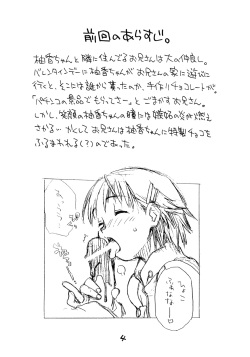 前回のあらすじ。
柚香ちゃんと隣に住んでるお兄さんは大の仲良し。
バレンタインデーに柚香ちゃんがお兄さんの家に遊びに
行くと、そこには誰から貰ったのか、手作りチョコレートが。
「パチンコの景品でもらってさー」とごまかすお兄さん。
しかし、笑顔の柚香ちゃんの瞳には嫉妬の炎が燃え
さかる…。かくしてお兄さんは柚香に特製チョコを
ふるまわれる(?)のであった。
4